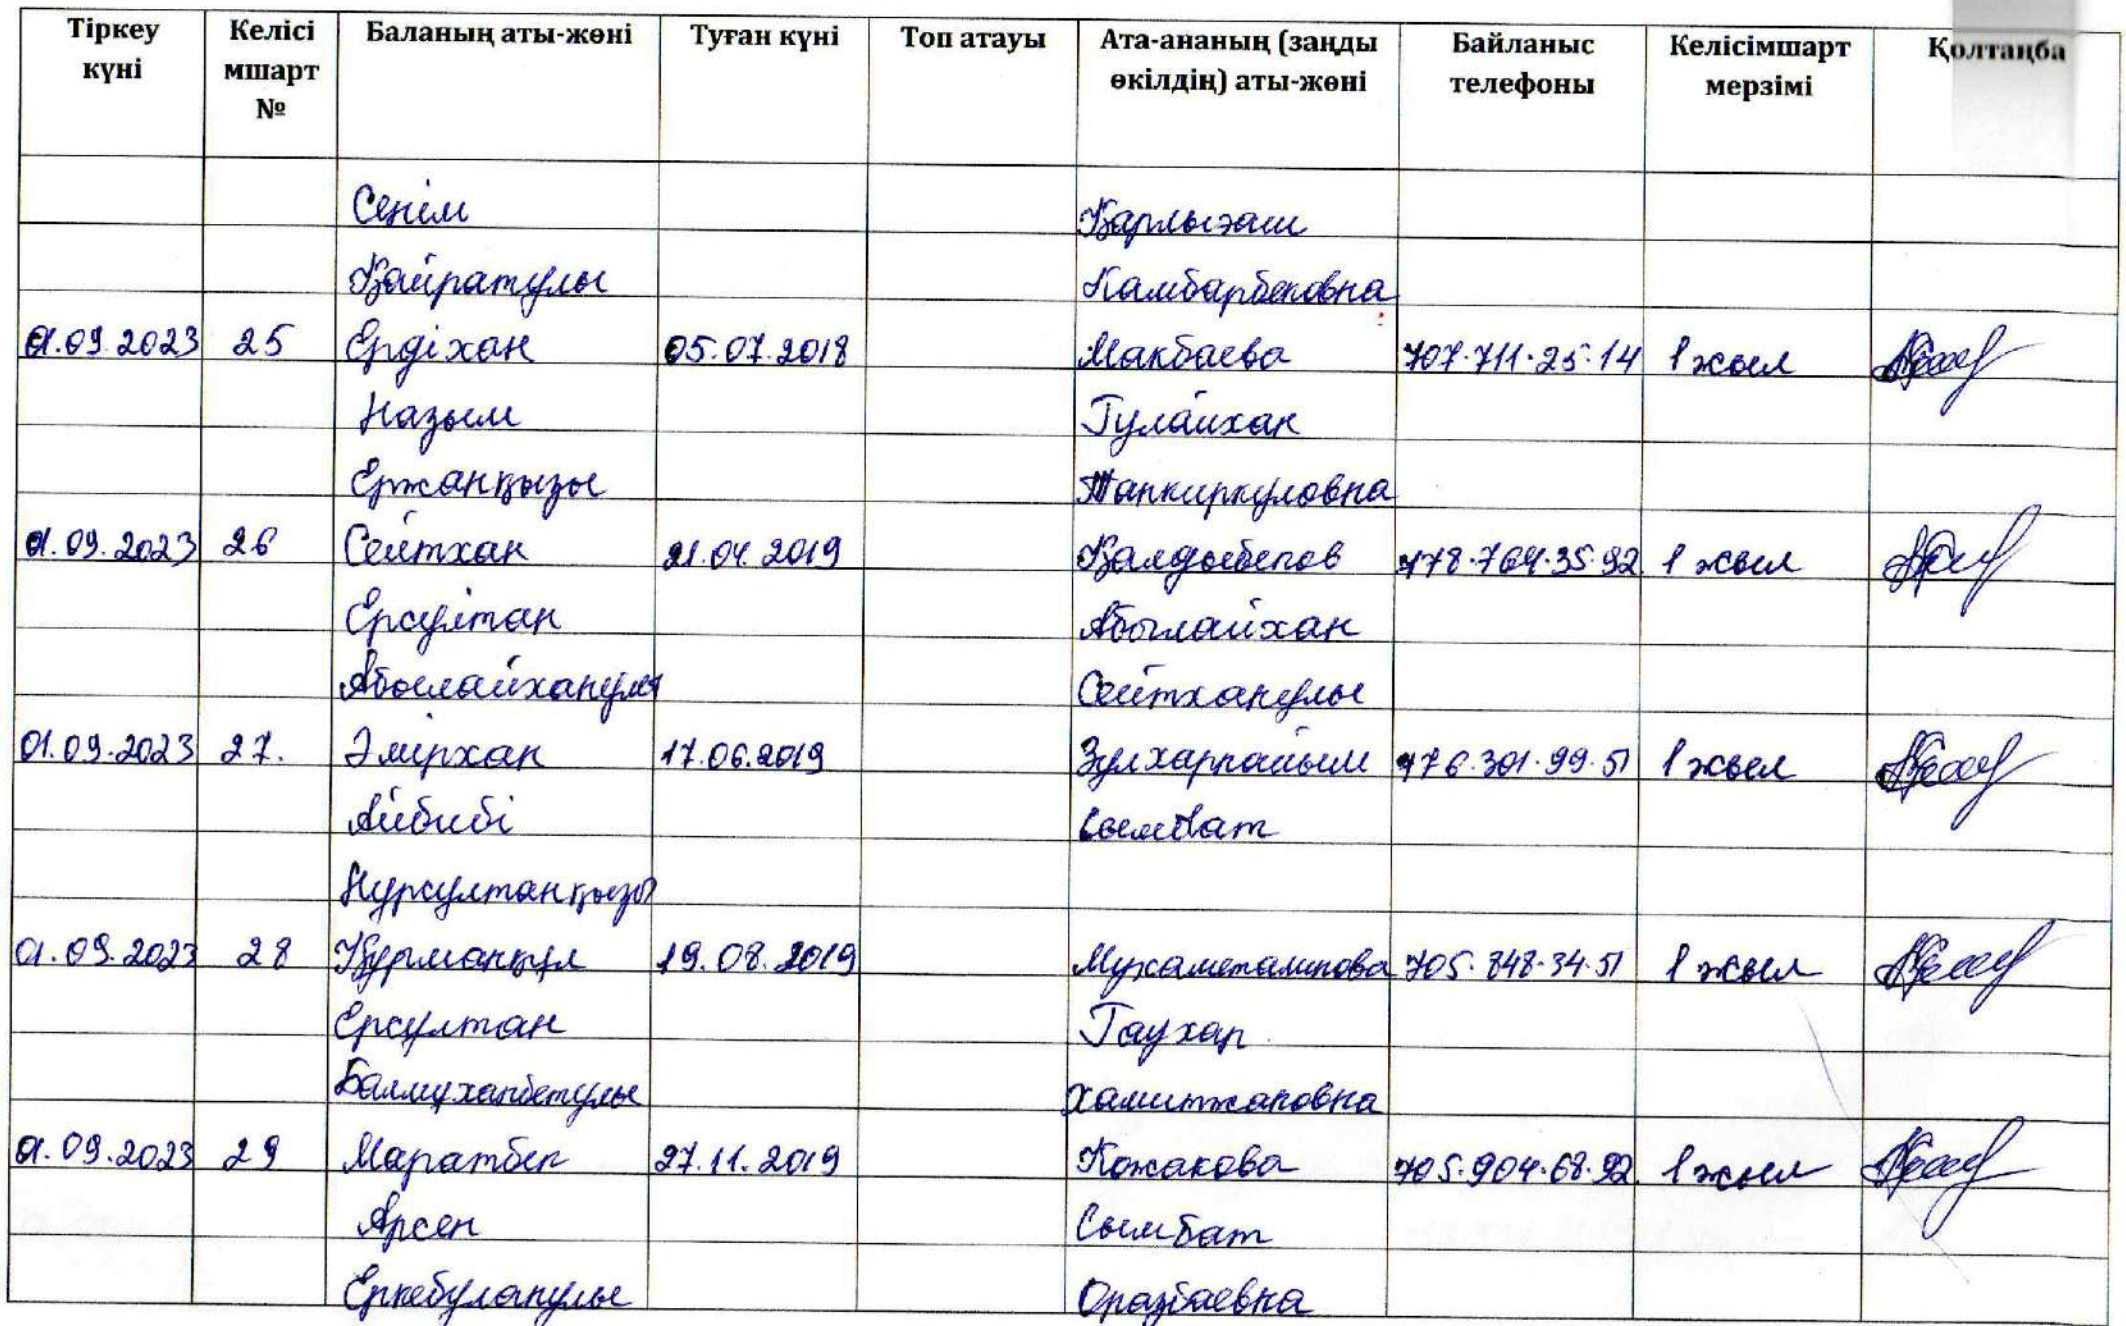 Тіркеу күні Келісі мшарт № Баланың аты-жөні Туған күні Топ атауы Ата-ананың (заңды өкілдің) аты-жөні Байланыс телефоны Келісімшарт мерзімі Қолтаңба
Сенім Қарлығаш
Қайратұлы Камбарбековна
01.09.2023 25 Ердіхан 05.07.2018 Макбаева 707.711.25.14 1 жыл
Назым Гулайхан
Ержанқызы Тапкиркуловна
01.09.2023 26 Сейтхан 21.04.2019 Қалдыбеков 778.764.35.92 1 жыл
Ерсұлтан Абылайхан
Абылайханұлы Сейтханұлы
01.09.2023 27. Әмірхан 17.06.2019 Зулхарнайым 776.301.99.51 1 жыл
Айбибі Сымбат
Нұрсұлтанқызы
01.09.2023 28 Құрманқұл 19.08.2019 Мухаметалинова 705.848.34.51 1 жыл
Ерсұлтан Гаухар
Балмұханбетұлы Хамитжановна
01.09.2023 29 Маратбек 27.11.2019 Кожакова 705.904.68.92. 1 жыл
Арсен Сымбат
Еркебұланұлы Оразбаевна